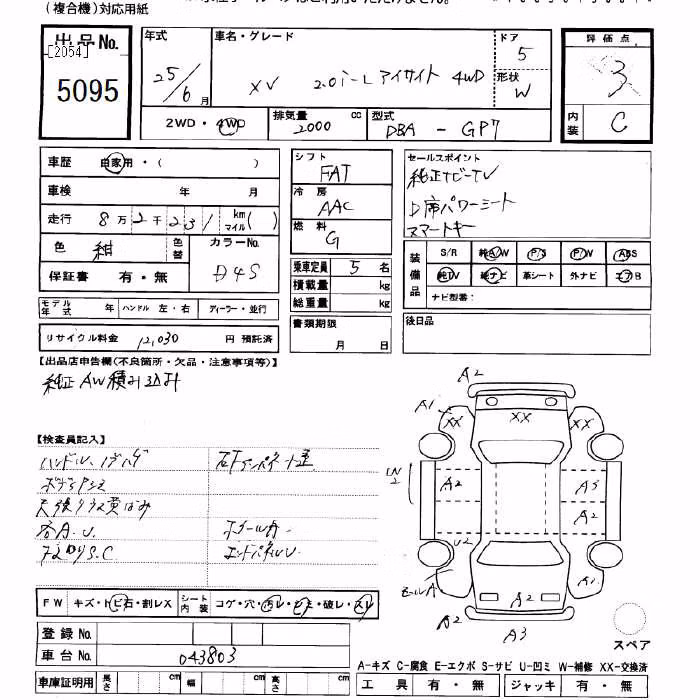 (複合機)対応用紙
出品No.
[2054]
5095
年式
25/6月
車名・グレード
XV 2.0i-L アイサイト 4WD
ドア
5
形状
W
評価点
3
内装
C
2WD・4WD
排気量
2000 cc
型式
DBA - GP7
車歴 自家用・( )
車検 年 月
走行 8万2千231 km マイル( )
色 紺 色替
カラーNo.
D4S
保証書 有・無
モデル年式 年 ハンドル 左・右 ディーラー・並行
リサイクル料金 12,030 円 預託済
シフト
FAT
冷房
AAC
燃料
G
乗車定員 5 名
積載量 kg
総重量 kg
書類期限
月 日
セールスポイント
純正ナビ-TV
D席パワーシート
スマートキー
装備品
S/R 純A/W P/S P/W ABS
純TV 純ナビ 革シート 外ナビ エアB
ナビ型番:
後日品
【出品店申告欄(不良箇所・欠品・注意事項等)】
純正AW積み込み
【検査員記入】
ハンドル、ハゲ
天張り
各A.U.
S.C
ホイールA
エンドパネルU
FW キズ・トビ石・割レX
シート内装 コゲ・穴・汚レ・シミ・破レ・スレ
登録No.
車台No. 043803
車庫証明用 長さ cm 幅 cm 高さ cm
A2
A1 XX XX XX
W2 A2 A3
A2
U2
モールA A2 A1
A2 A2
A3
スペア
A-キズ C-腐食 E-エクボ S-サビ U-凹ミ W-補修 XX-交換済
工具 有・無 ジャッキ 有・無